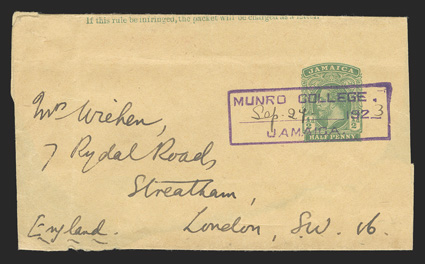 If this rule be infringed, the packet will be charged as a letter.
JAMAICA
MUNRO COLLEGE.
Sep. 24 1923
JAMAICA
HALF PENNY
Mrs Wiehen,
7 Rydal Road,
Streatham,
England. London, S.W. 16.